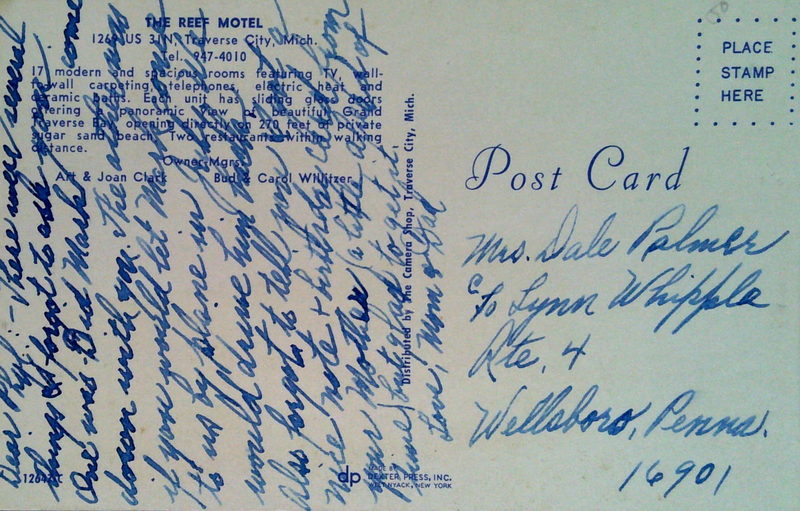 THE REEF MOTEL
1269 US 31N, Traverse City, Mich.
Tel. 947-4010
17 modern and spacious rooms featuring TV, wall-
to-wall carpeting, telephones, electric heat and
ceramic baths. Each unit has sliding glass doors
offering a panoramic view of beautiful Grand
Traverse Bay, opening directly on 270 feet of private
sugar sand beach. Two restaurants within walking
distance.
Owner-Mgrs.
Art & Joan Clark Bud & Carol Willitzer
Dear Phyl - There were several
things I forgot to ask you
One was Did Mark come
down with
if you would let Mark come
to us by plane in
would drive him
Also forgot to tell you
nice note & birthday card from
your Mother (a little ahead of
time) but glad to get it.
Love, Mom & Dad
Distributed by The Camera Shop, Traverse City, Mich.
dp MADE BY
DEXTER PRESS, INC.
WEST NYACK, NEW YORK
PLACE
STAMP
HERE
Post Card
Mrs. Dale Palmer
c/o Lynn Whipple
Rte. 4
Wellsboro, Penna.
16901